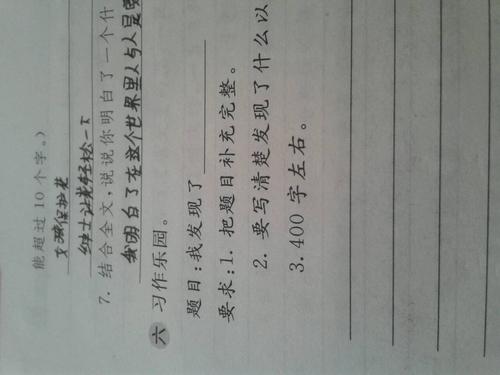 能超过10个字。)
文环保护者
绅士让老轻松一下
7. 结合全文,说说你明白了一个什
我明白了在这个世界里人与人是要
六 习作乐园。
题目:我发现了
要求:1. 把题目补充完整。
2. 要写清楚发现了什么以
3. 400 字左右。